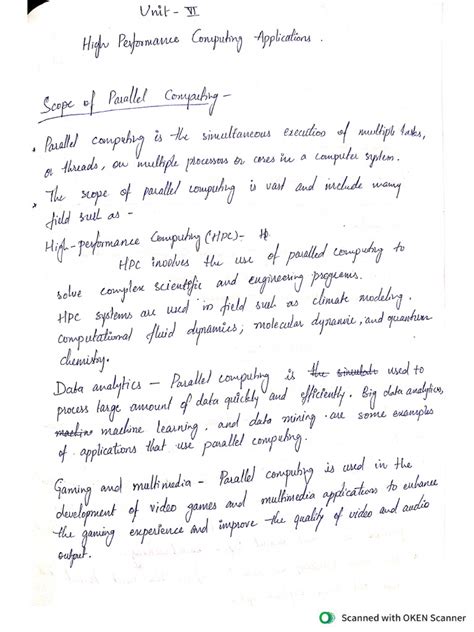 Unit - VI
High Performance Computing Applications.
Scope of Parallel Computing -
• Parallel computing is the simultaneous execution of multiple tasks,
or threads, on multiple processors or cores in a computer system.
• The scope of parallel computing is vast and include many
field such as -
High-performance Computing (HPC)-
HPC involves the use of paralled computing to
solve complex scientific and engineering programs.
HPC systems are used in field such as climate modeling,
computational fluid dynamics, molecular dynamic, and quantum
chemistry.
Data analytics - Parallel computing is the simulato used to
process large amount of data quickly and efficiently. Big data analytics,
machin machine learning, and data mining are some examples
of applications that use parallel computing.
Gaming and multimedia - Parallel computing is used in the
development of video games and multimedia applications to enhance
the gaming experience and improve the quality of video and audio
output.
Scanned with OKEN Scanner